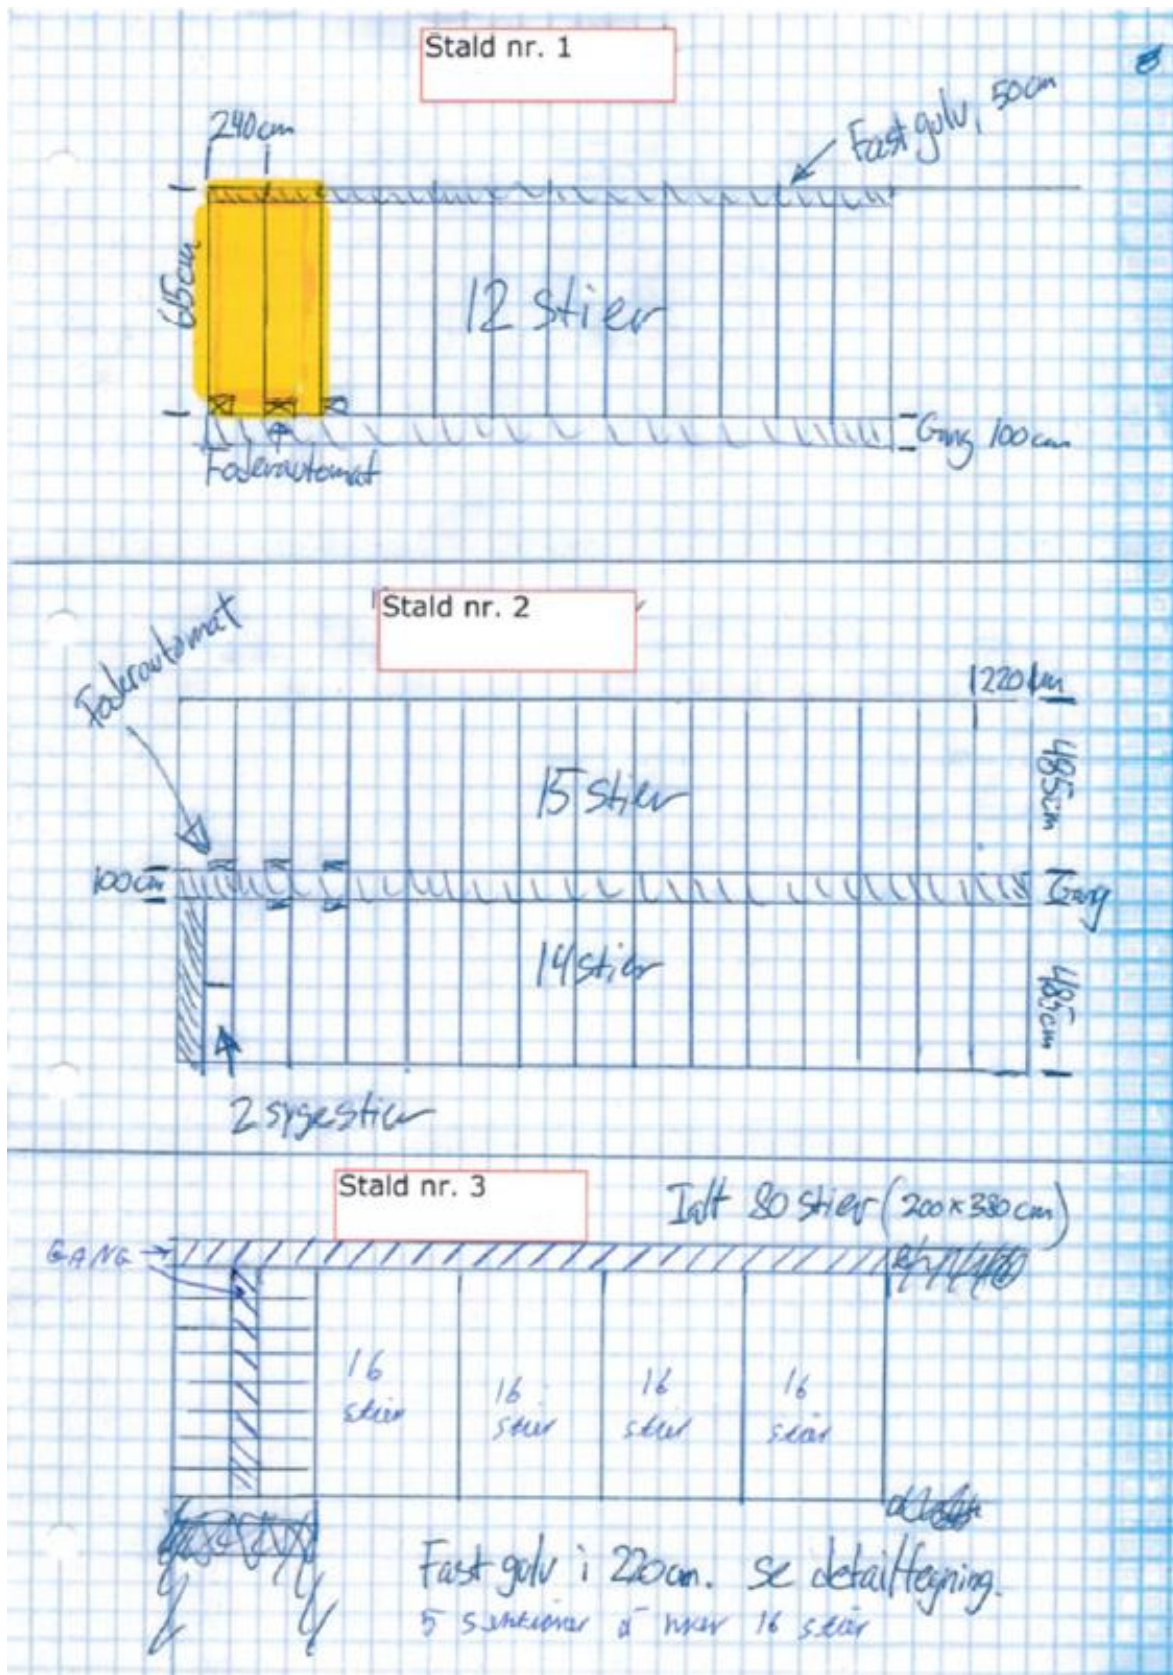 Stald nr. 1
240cm
Fast gulv, 50cm
615cm
12 stier
Gang 100cm
Foderautomat
Stald nr. 2
Foderautomat
1220 cm
485cm
15 stier
100cm
Gang
14 stier
485cm
2 sygestier
Stald nr. 3
Ialt 80 stier (200x380cm)
GANG
16
stier
16
stier
16
stier
16
stier
Fast gulv i 220cm. Se detailtegning.
5 sektioner á hver 16 stier